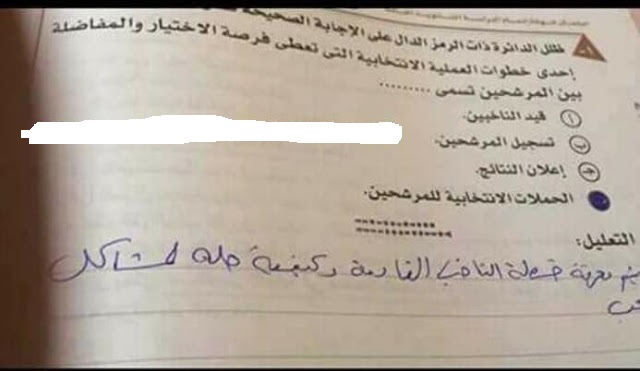 ظلل الدائرة ذات الرمز الدال على الإجابة الصحيحة
إحدى خطوات العملية الانتخابية التى تعطى فرصة الاختيار والمفاضلة
بين المرشحين تسمى .........
أ قيد الناخبين.
ب تسجيل المرشحين.
ج إعلان النتائج.
الحملات الانتخابية للمرشحين.
التعليل:
معرفة خطة الناخب القادمة وكيفية حله المشاكل